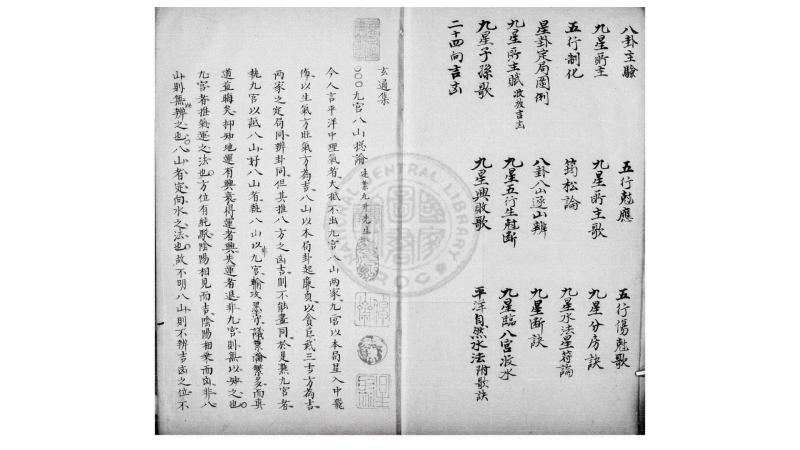 八卦主驗
五行尅應
五行傷尅歌
九星所主
九星所主歌
九星分房訣
五行制化
筠松論
九星水法星符論
星卦定局圖例
八卦八山逐山辨
九星斷訣
九星所主賦 水放吉凶
九星五行生尅斷
九星臨八宮放水
九星子孫歌
九星興敗歌
平洋自然水法附歌訣
二十四向吉凶
玄通集
○○○九宮八山總論
今人言平洋中理氣者大抵不出九宮八山兩家九宮以本局星入中飛
佈以生氣方旺氣方為吉八山以本局卦起廉貞以貪巨武三吉方為吉
兩家之定局同辨卦同但其推八方之凶吉則不能盡同於是熟九宮者
執九宮以詆八山好八山者執八山以 九宮輸攻墨守議業論繁多而真
道益晦矣抑知地運有興衰得運者興失運者退非九宮則無以知之也
九宮者推氣運之法也方位有純駁陰陽相見而吉陰陽相乘而凶非八
山則無辨之也八山者定向水之法也故不明八山則不辨吉凶之位不
NATIONAL CENTRAL LIBRARY
國家圖書館